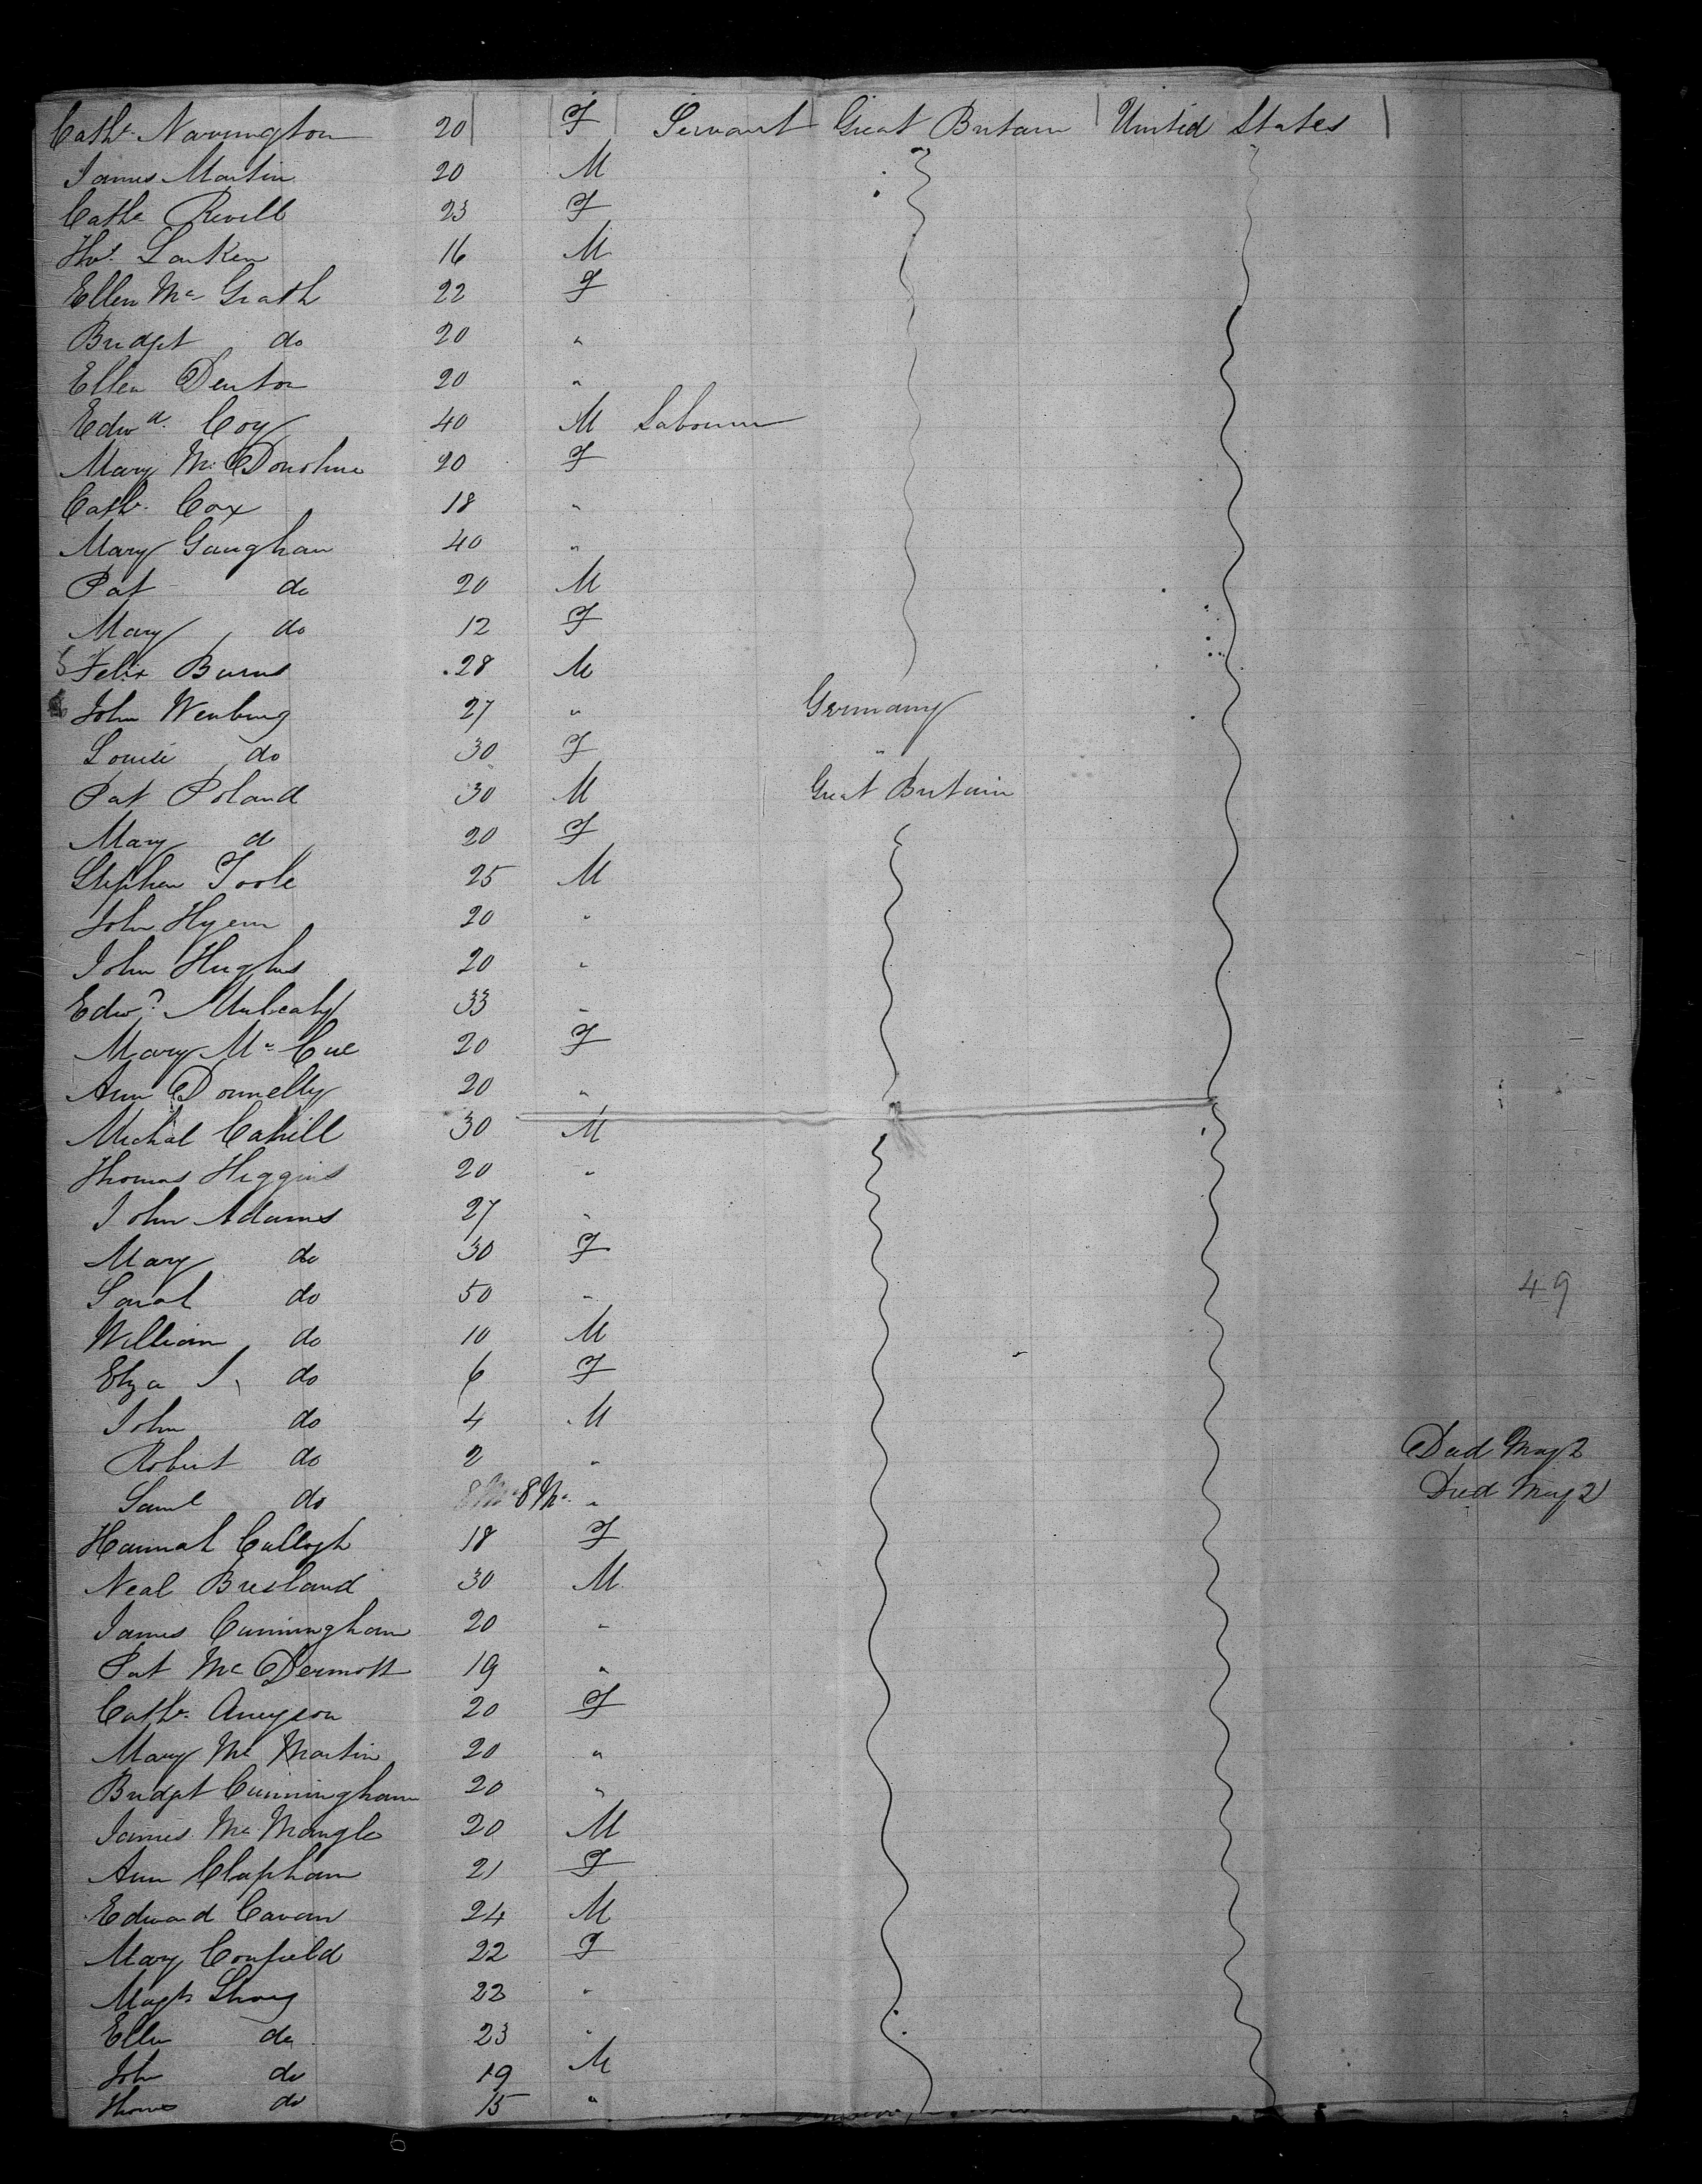 Cathe. Navington 20 F Servant Great Britain United States
James Martin 20 M
Cathe Revill 23 F
Thos. Larken 16 M
Ellen Mc Grath 22 F
Bridget do 20 "
Ellen Denton 20 "
Edwd. Coy 40 M Labourer
Mary Mc Donohue 20 F
Cathe. Cox 18 "
Mary Gaughan 40 "
Pat do 20 M
Mary do 12 F
Felix Burns 28 M
John Wenburg 27 " Germany
Louise do 30 F "
Pat Poland 30 M Great Britain
Mary do 20 F
Stephen Toole 25 M
John Hyem 20 "
John Hughes 20 "
Edwd. Mulcahy 33 "
Mary Mc Cue 20 F
Ann Donnelly 20 "
Michal Cahill 30 M
Thomas Higgins 20 "
John Adams 27 "
Mary do 30 F
Sarah do 50 "
William do 10 M
Eliza J. do 6 F
John do 4 M
Robert do 2 " Died May 2
Saml do 8 Mo. " Died May 2
Hannah Cullogh 18 F
Neal Bresland 30 M
James Cunningham 20 "
Pat Mc Dermott 19 "
Cathe. 20 F
Mary Mc Martin 20 "
Bridget Cunningham 20 "
James Mc Mangle 20 M
Ann Clapham 21 F
Edward Cavan 24 M
Mary Confield 22 F
Magt. 22 "
Ellen do 23 "
John do 19 M
Thomas do 15 "
49
6